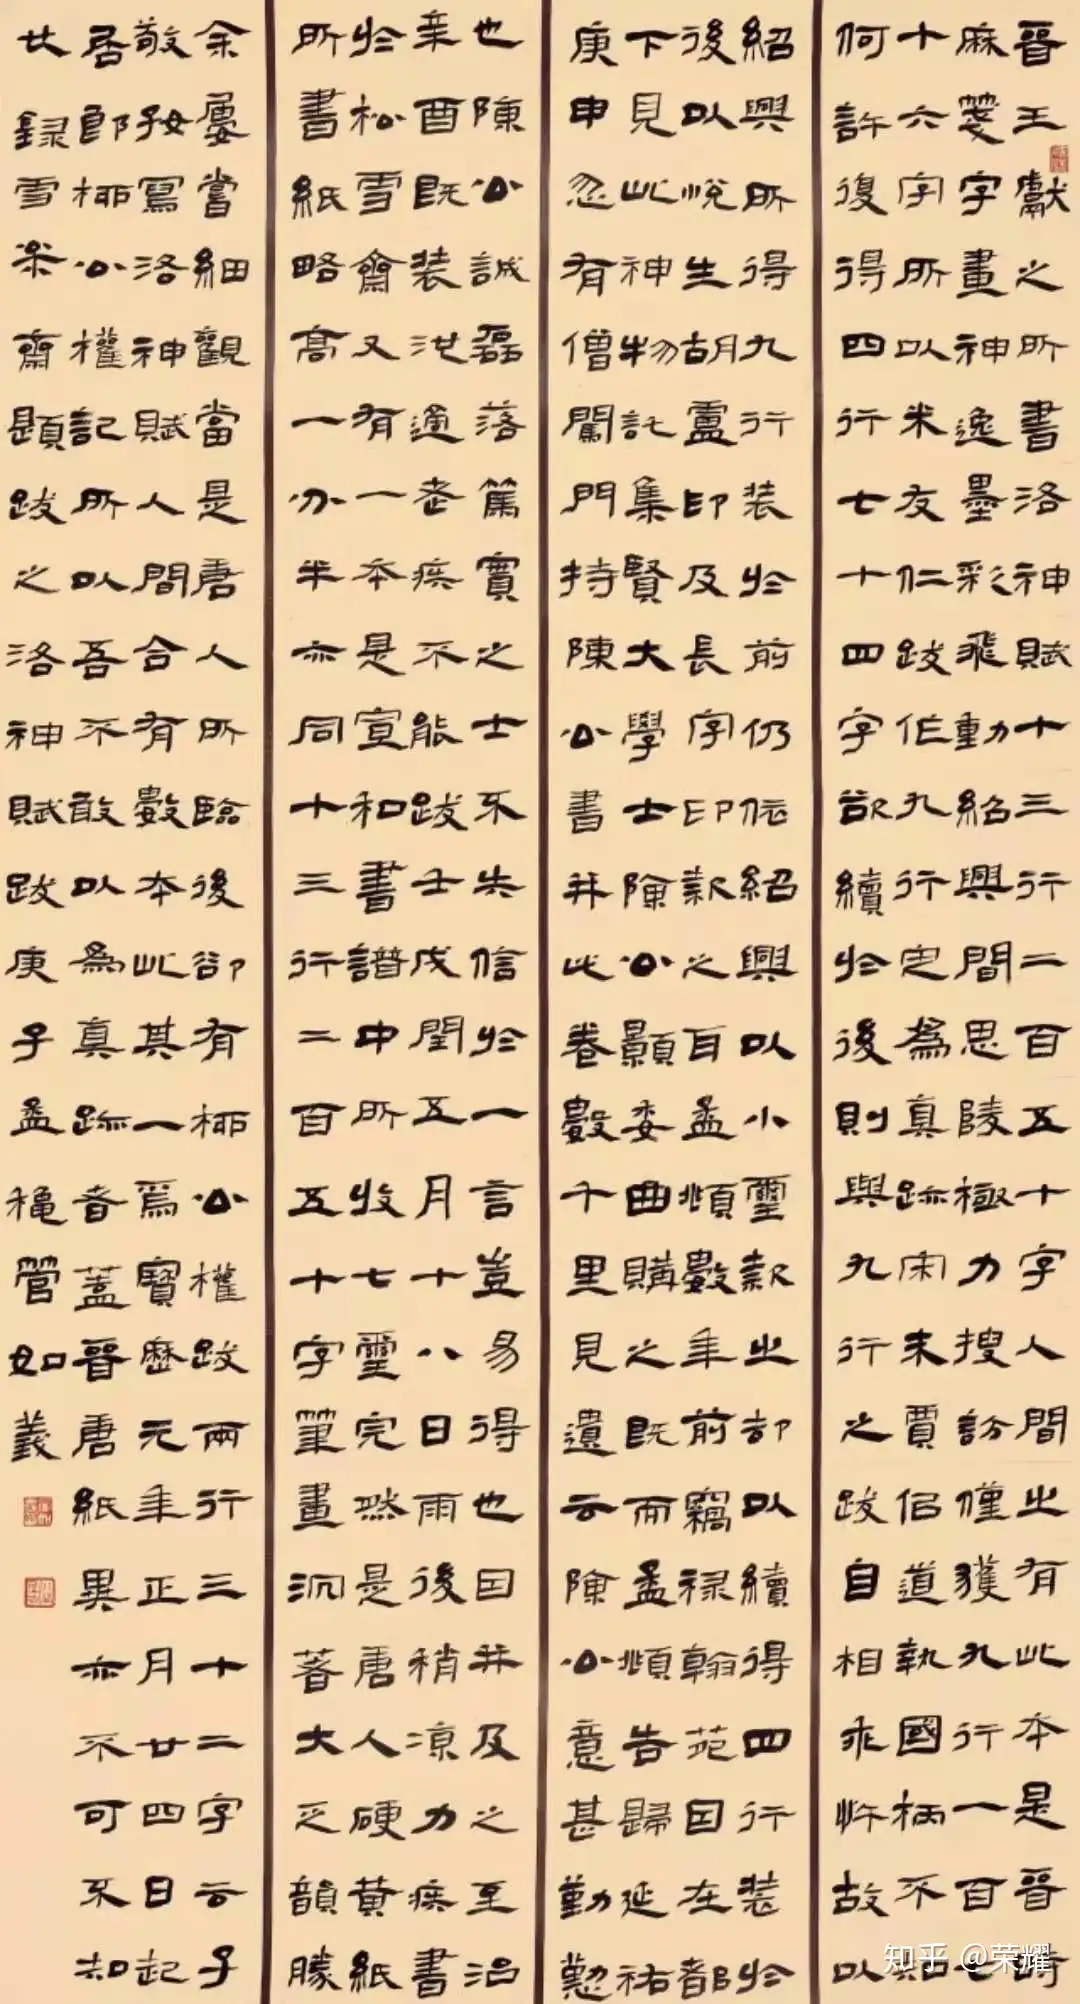 晉王獻之所書洛神賦十三行二百五十字人間止有此本是晉時
麻箋字畫神逸墨彩飛動紹興間思陵極力搜訪僅獲九行一百七
十六字所以米友仁跋作九行定為真跡宋末賈侣道執國柄不知
何許復得四行七十四字欲續於後則與九行之跋自相乖忤故以
紹興所得九行裝於前仍依紹興以小璽款止却以續得四行裝於
後以悅生胡盧印及長字印款之耳孟頫數年前竊祿翰苑因在都
下見此神物託集賢大學士陳公顥委曲購之既而孟頫告歸延祐
庚申忽有僧闖門持陳公書并此卷數千里見遺云陳公意甚勤懇
也陳公誠磊落篤實之士不失信於一言豈易得也因并及之至治
辛酉既裝池適老疾不能跋壬戌閏五月十八日雨後稍涼力疾書
於松雪齋又有一本是宣和書譜中所收七璽完然是唐人硬黃紙
所書紙略高一分半亦同十三行二百五十字筆畫沉著大乏韻勝
余屢嘗細觀當是唐人所臨後卻有柳公權跋兩行三十二字云子
敬好寫洛神賦人間合有數本此其一焉寶歷元年正月廿四日起
居郎柳公權記所以吾不敢以為真跡者蓋晉唐紙異亦不可不知
錄雪枩齋題跋之洛神賦跋庚子孟穐管如義
知乎 @荣耀